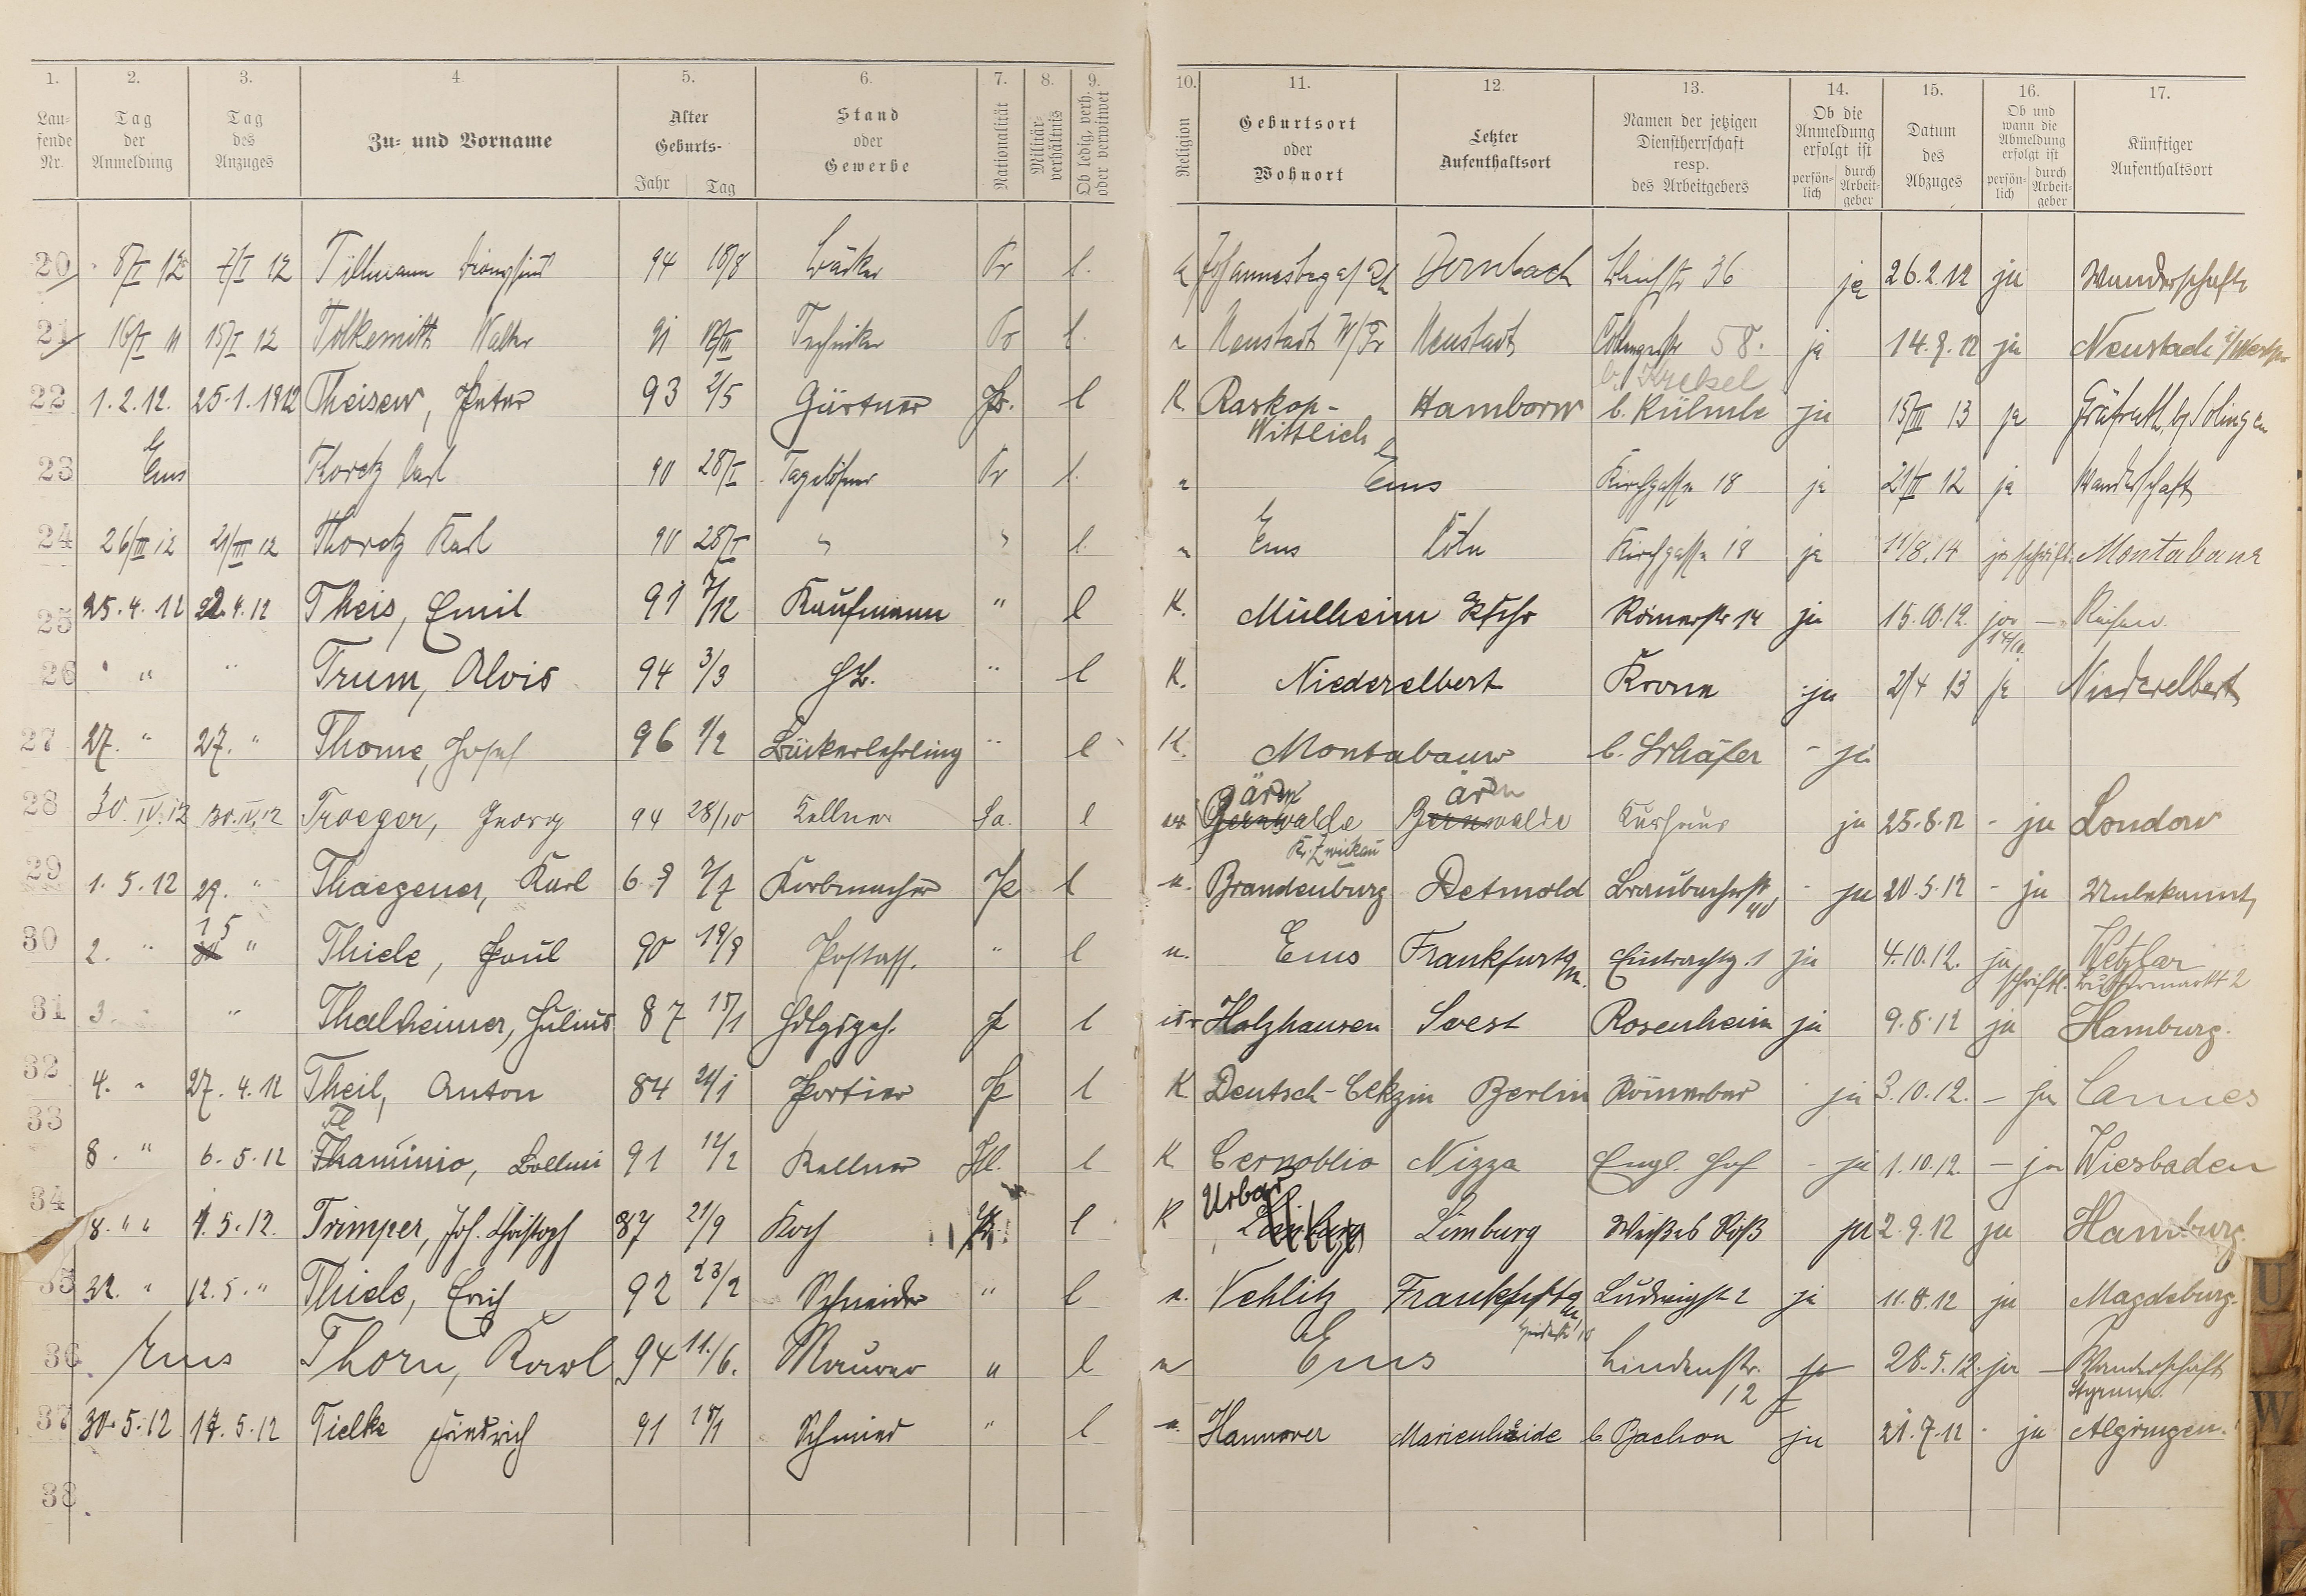 1. 2. 3. 4. 5. 6. 7. 8. 9. 10. 11. 12. 13. 14. 15. 16. 17.
Lau-fende Nr. Tag der Anmeldung Tag des Anzuges Zu- und Vorname Alter Geburts- Jahr Tag Stand oder Gewerbe Nationalität Militär-verhältnis Ob ledig, verh. oder verwitwet Religion Geburtsort oder Wohnort Letzter Aufenthaltsort Namen der jetzigen Dienstherrschaft resp. des Arbeitgebers Ob die Anmeldung erfolgt ist persön-lich durch Arbeit-geber Datum des Abzuges Ob und wann die Abmeldung erfolgt ist persön-lich durch Arbeit-geber Künftiger Aufenthaltsort
20 8/I 12 7/I 12 Tillmann 94 18/8 Bäcker Pr l. Dernbach 36 ja 26.2.12 ja Wanderschaft
21 16/I 15/I 12 Tolksmitt Walter 91 Techniker Pr l. Neustadt W/Pr Neustadt 58. ja 14.9.12 ja Neustadt
b. Krekel
22 1.2.12. 25.1.1912 Theisen, Peter 93 2/5 Gärtner Pr. l K. Raskop-Wittlich Hamborn b. Külmle ja 15/III 13 ja Gräfrath b/ Solingen
23 Ems Thoretz Carl 90 28/I Tagelöhner Pr l. Ems Kirchgasse 18 ja 21/II 12 ja Wanderschaft
24 26/III 12 21/III 12 Thoretz Karl 90 28/I " " l. Ems Cöln Kirchgasse 18 ja 11/8.14 ja schriftl. Montabaur
25 25.4.12 22.4.12 Theis, Emil 91 7/12 Kaufmann " l K. Mülheim Römerstr 14 ja 15.10.12. ja 14/10. — Reisen.
26 " " " Trum, Alois 94 3/3 " l K. Niederelbert Krone ja 2/4 13 ja Niederelbert
27 27. " 27. " Thome, Josef 96 1/2 Bäckerlehrling " l K. Montabaur b. Schäfer - ja
28 30.IV.12 30.IV.12 Troeger, Georg 94 28/10 Kellner Sa. l ev Bernwalde ärn Kr. Zwickau Bernwalde ärn Kurhaus ja 25.8.12 - ja London
29 1.5.12 29. " Thaegener, Karl 69 7/7 Korbmacher Pr l Brandenburg Detmold Braubacherstr 40 - ja 20.5.12 - ja Unbekannt
30 2. " 1 5 " Thiele, Paul 90 19/9 Postass. " l Ems Frankfurt a/M. Eintrachtg. 1 ja 4.10.12. ja schriftl. Wetzlar Buttermarkt 2
31 3. " " Thalheimer, Julius 87 15/1 Hdlgsgeh. Pr l isr Holzhausen Soest Rosenheim ja 9.8.12 ja Hamburg.
32 4. " 27.4.12 Theil, Anton 84 24/1 Portier Pr l K Deutsch-Cekzin Berlin Römerbad - ja 3.10.12. - ja Cannes
33 8. " 6.5.12 Thaminio, Bollini 91 12/2 Kellner Jtl. l K Cernobbio Nizza Engl. Hof - ja 1.10.12. - ja Wiesbaden
34 8. " " 4.5.12. Trimper, Joh. Christoph 87 21/9 Koch Pr. l K Urbar Limburg Weißes Roß ja 2.9.12 ja Hamburg.
35 22. " 12.5. " Thiele, Erich 92 23/2 Schneider " l Vehlitz Frankfurt a/M Ludwigstr 2 ja 11.8.12 ja Magdeburg.
36 Ems Thorn, Karl 94 11./6. Maurer " l Ems Lindenstr. 12 ja 28.5.12. ja — Wanderschaft Styrum.
37 30.5.12 14.5.12 Tielke Friedrich 91 18/1 Schmied " l Hannover Marienheide b. Bachon ja 21.7.12 - ja Algringen.
38
U
V
W
X